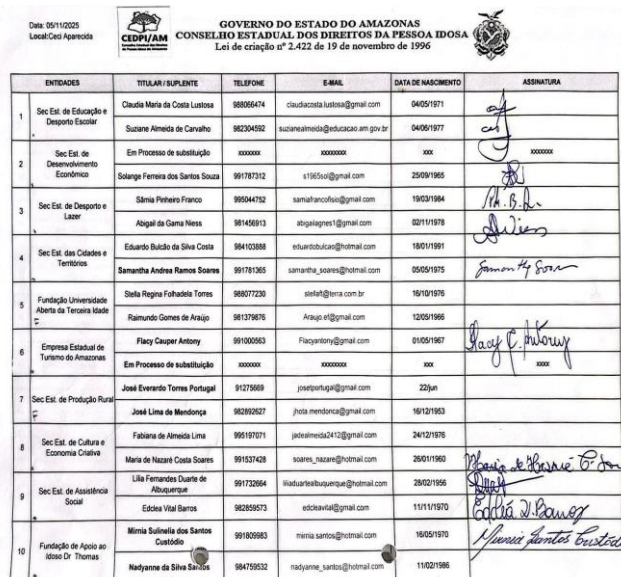 Data: 05/11/2025
Local:Ceci Aparecida
CEDPI/AM
GOVERNO DO ESTADO DO AMAZONAS
CONSELHO ESTADUAL DOS DIREITOS DA PESSOA IDOSA
Lei de criação nº 2.422 de 19 de novembro de 1996
ENTIDADES TITULAR / SUPLENTE TELEFONE E-MAIL DATA DE NASCIMENTO ASSINATURA
1 Sec Est. de Educação e Desporto Escolar
Claudia Maria da Costa Lustosa 988066474 claudiacosta.lustosa@gmail.com 04/05/1971
Suziane Almeida de Carvalho 982304592 suzianealmeida@educacao.am.gov.br 04/06/1977
2 Sec Est. de Desenvolvimento Econômico
Em Processo de substituição xxxxxxx xxxxxxxxx xxx xxxxxxx
Solange Ferreira dos Santos Souza 991787312 s1965sol@gmail.com 25/09/1965
3 Sec Est. de Desporto e Lazer
Sâmia Pinheiro Franco 995044752 samiafrancofisio@gmail.com 19/03/1984
Abigail da Gama Niess 981456913 abigailagnes1@gmail.com 02/11/1978
4 Sec Est. das Cidades e Territórios
Eduardo Bulcão da Silva Costa 984103888 eduardobulcao@hotmail.com 18/01/1991
Samantha Andrea Ramos Soares 991781365 samantha_soares@hotmail.com 05/05/1975
5 Fundação Universidade Aberta da Terceira Idade
Stella Regina Folhadela Torres 988077230 stellaft@terra.com.br 16/10/1976
Raimundo Gomes de Araújo 981379876 Araujo.ef@gmail.com 12/05/1966
6 Empresa Estadual de Turismo do Amazonas
Flacy Cauper Antony 991000563 Flacyantony@gmail.com 01/05/1967
Em Processo de substituição xxxxxxx xxxxxxxxx xxx xxxx
7 Sec Est. de Produção Rural
José Everardo Torres Portugal 91275669 josetportugal@gmail.com 22/jun
José Lima de Mendonça 982892627 jhota.mendonca@gmail.com 16/12/1953
8 Sec Est. de Cultura e Economia Criativa
Fabiana de Almeida Lima 995197071 jadealmeida2412@gmail.com 24/12/1976
Maria de Nazaré Costa Soares 991537428 soares_nazare@hotmail.com 26/01/1960
9 Sec Est. de Assistência Social
Lilia Fernandes Duarte de Albuquerque 991732664 liliaduartealbuquerque@hotmail.com 28/02/1956
Edclea Vital Barros 982859573 edcleavital@gmail.com 11/11/1970
10 Fundação de Apoio ao Idoso Dr Thomas
Mirnia Sulinelia dos Santos Custódio 991809983 mirnia.santos@hotmail.com 16/05/1970
Nadyanne da Silva Santos 984759532 nadyanne_santos@hotmail.com 11/02/1986